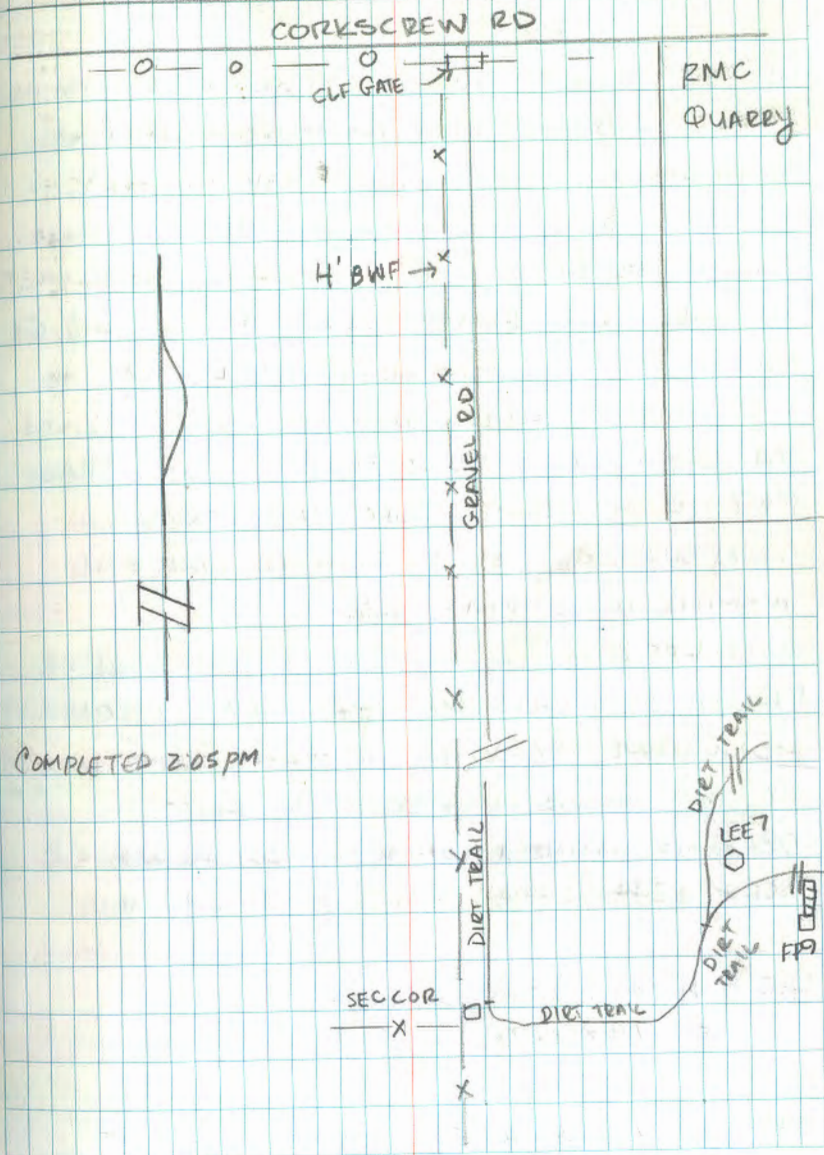 CORKSCREW RD
CLF GATE
RMC
QUARRY
4' BWF
GRAVEL RD
COMPLETED 2:05 PM
DIRT TRAIL
LEE7
DIRT TRAIL
FP9
DIRT
TRAIL
SEC COR
DIRT TRAIL